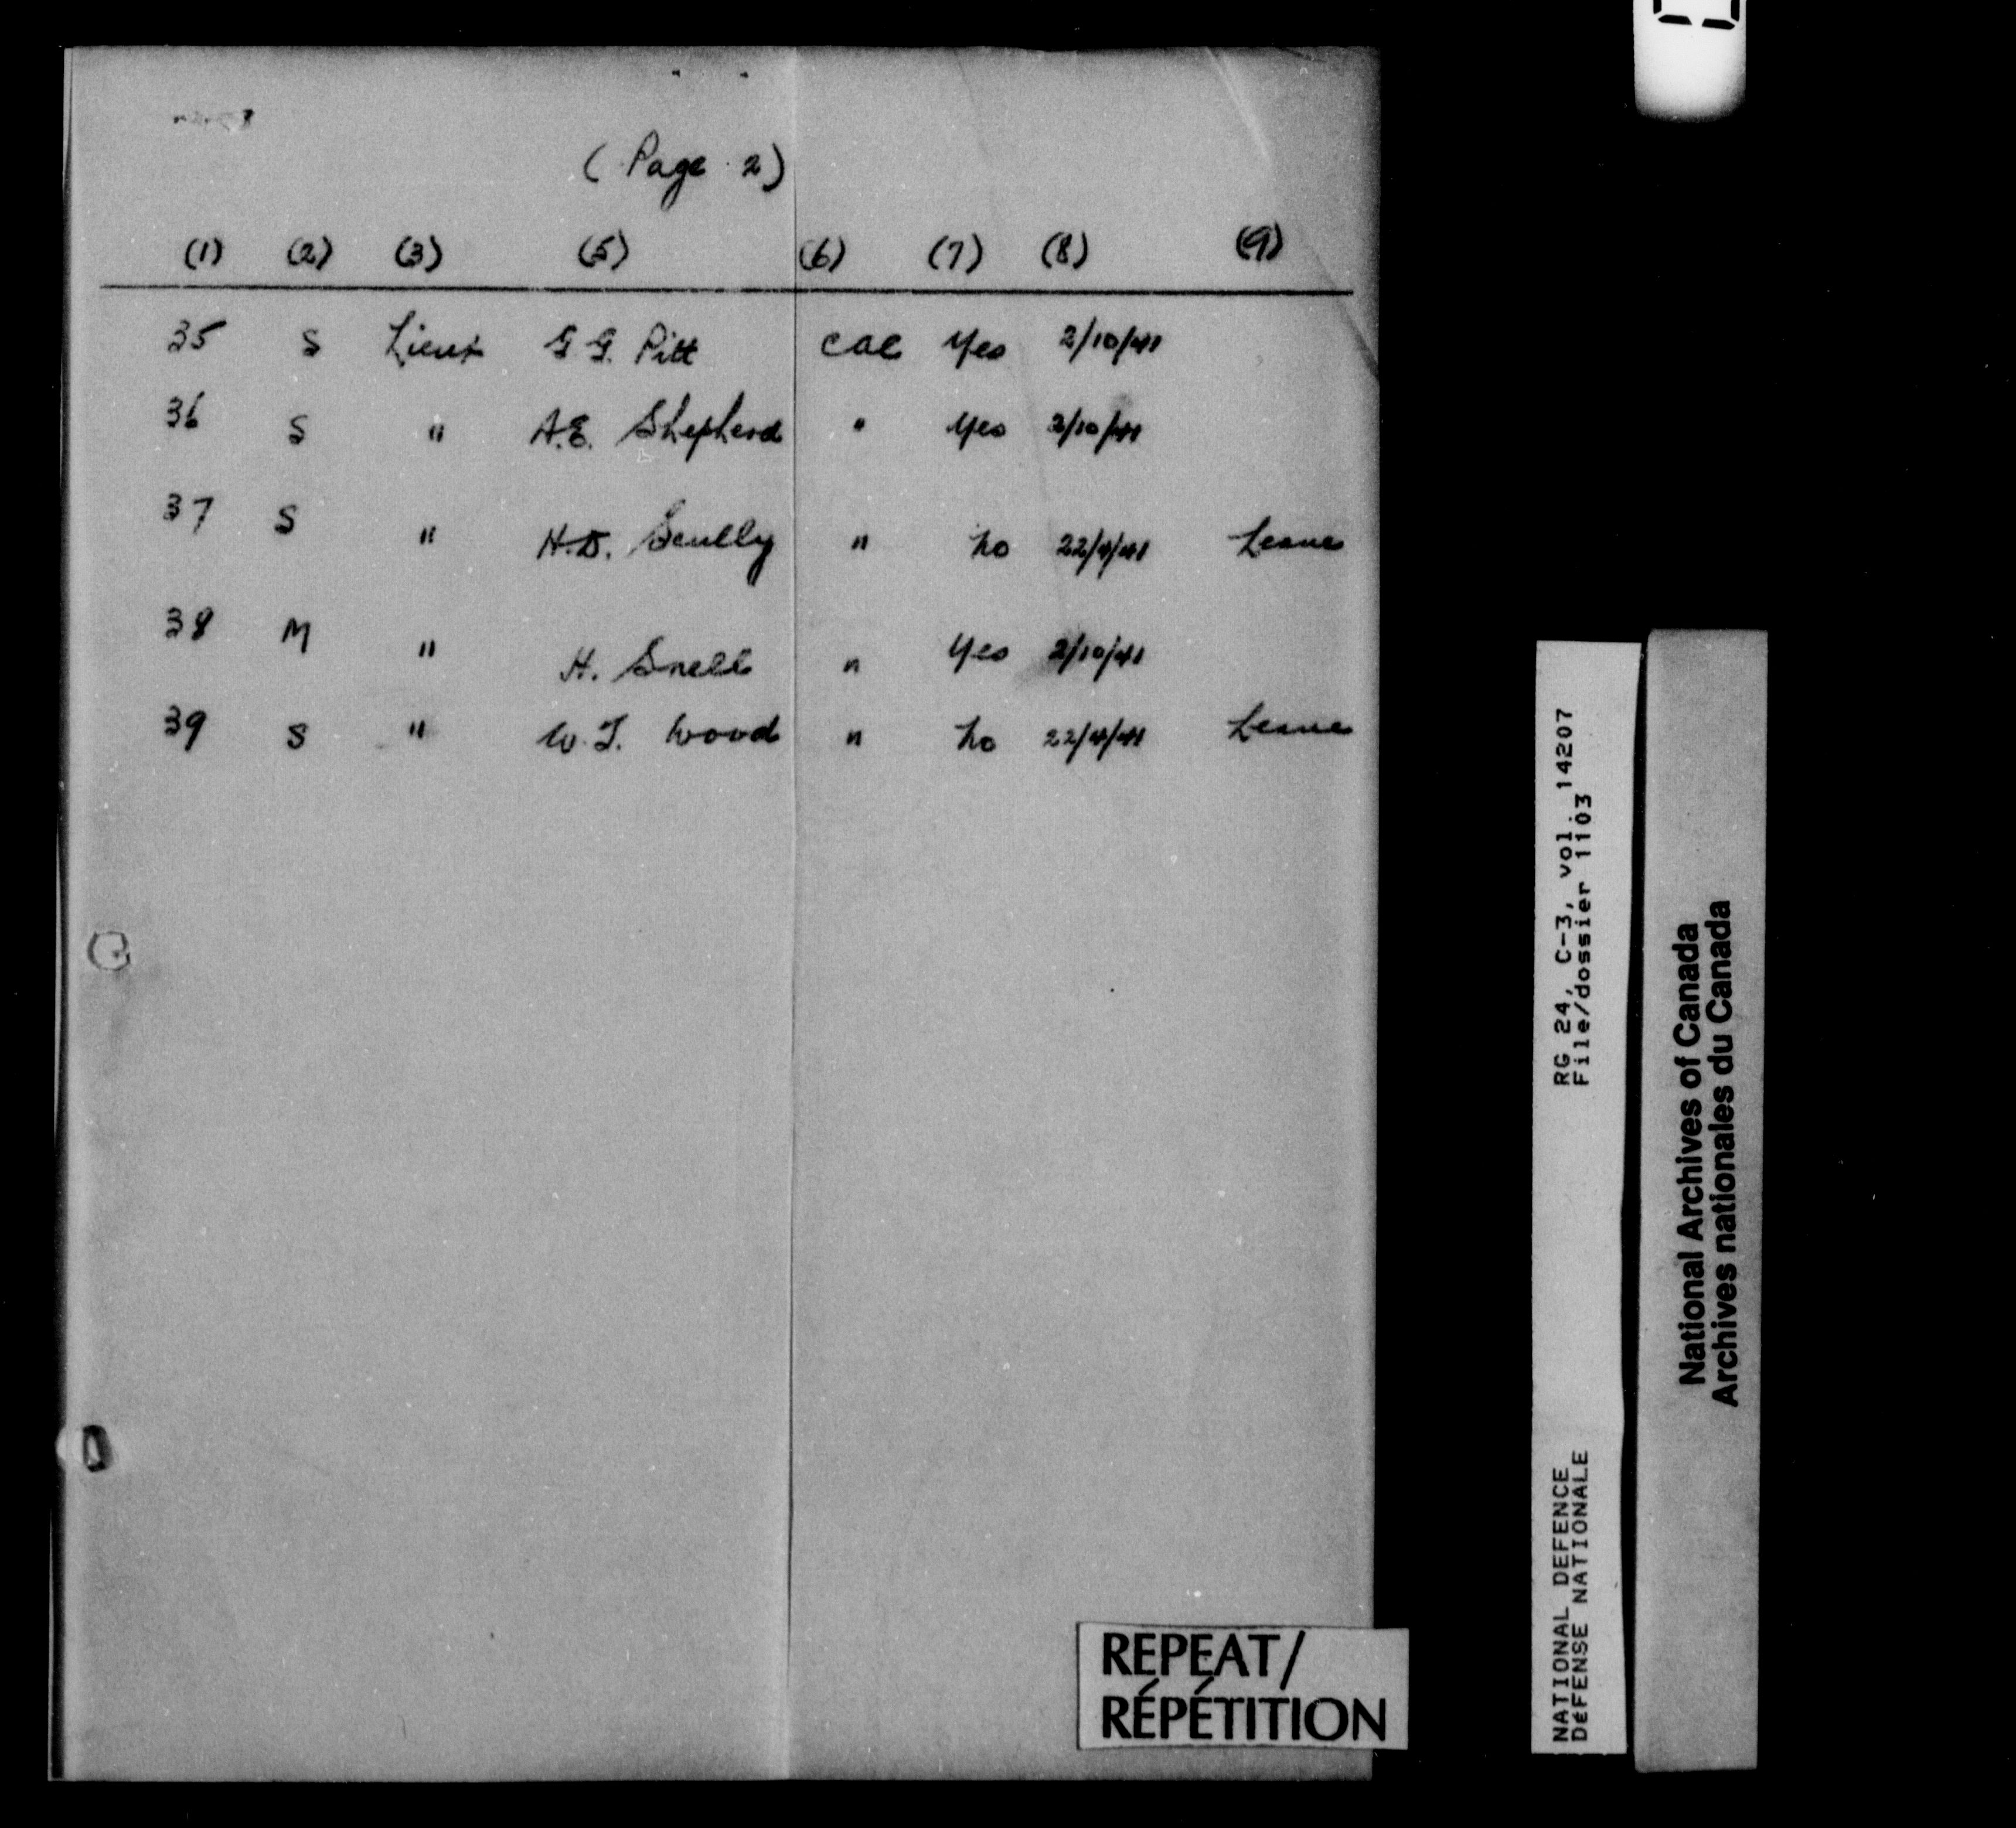 ( Page 2 )
(1) (2) (3) (5) (6) (7) (8) (9)
35 S Lieut G.G. Pitt CAC Yes 2/10/41
36 S " A.E. Shepherd " Yes 2/10/41
37 S " H.D. Scully " No 22/4/41 Leave
38 M " H. Snell " Yes 2/10/41
39 S " W.J. Wood " No 22/4/41 Leave
REPEAT/
RÉPÉTITION
NATIONAL DEFENCE RG 24, C-3, vol. 14207
DéFENSE NATIONALE File/dossier 1103
National Archives of Canada
Archives nationales du Canada